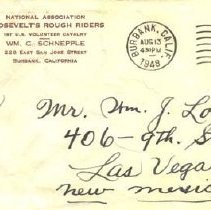 NATIONAL ASSOCIATION
OOSEVELT'S ROUGH RIDERS
1ST U.S. VOLUNTEER CAVALRY
WM. C. SCHNEPPLE
228 EAST SAN JOSE STREET
BURBANK, CALIFORNIA
BURBANK, CALIF.
AUG 13
430 PM
1948
Mr. Wm. J. Lo
406-9th. S
Las Vega
new mexic